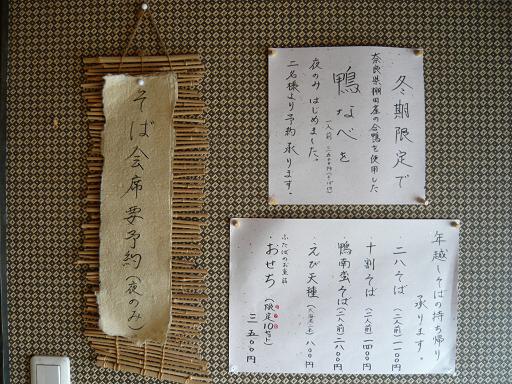 そば会席要予約(夜のみ)
冬期限定で
奈良県棚田産の合鴨を使用した
鴨なべを
夜のみはじめました。
二名様より予約承ります。
年越しそばの持ち帰り
承ります。
・二八そば(二人前)一一〇〇円
・十割そば(二人前)一四〇〇円
・鴨南蛮そば(二人前)二八〇〇円
・えび天種
八〇〇円
ふたばのお重箱
・おせち(限定10セット)
三五〇〇円